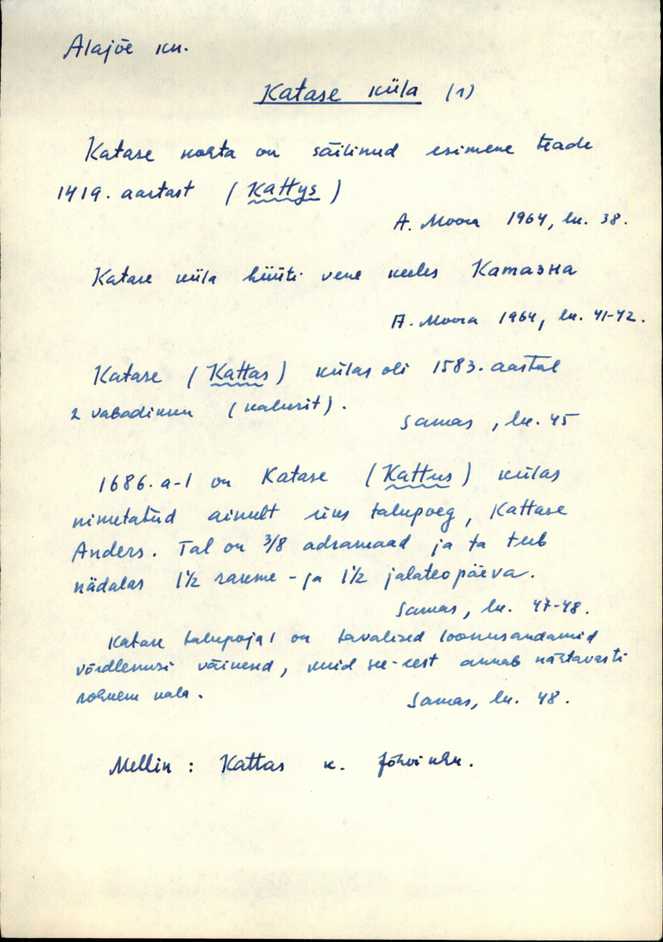 Alajõe kn.
Katase küla (1)
Katase kohta on säilinud esimene teade
1419. aastast (Kattys)
A. Moora 1964, lk. 38.
Katase küla hüüti vene keeles Катазна
A. Moora 1964, lk. 41-42.
Katase (Kattas) külas oli 1583. aastal
2 vabadikku (kalurit).
Samas, lk. 45
1686. a-l on Katase (Kattus) külas
nimetatud ainult üks talupoeg, Kattase
Anders. Tal on 3/8 adramaad ja ta teeb
nädalas 1½ rakme- ja 1½ jalateopäeva.
Samas, lk. 47-48.
Katase talupojal on tavalised loonusandamid
võrdlemisi väikesed, kuid see-eest annab nähtavasti
rohkem kala.
Samas, lk. 48.
Mellin: Kattas k. Jõhvi khk.